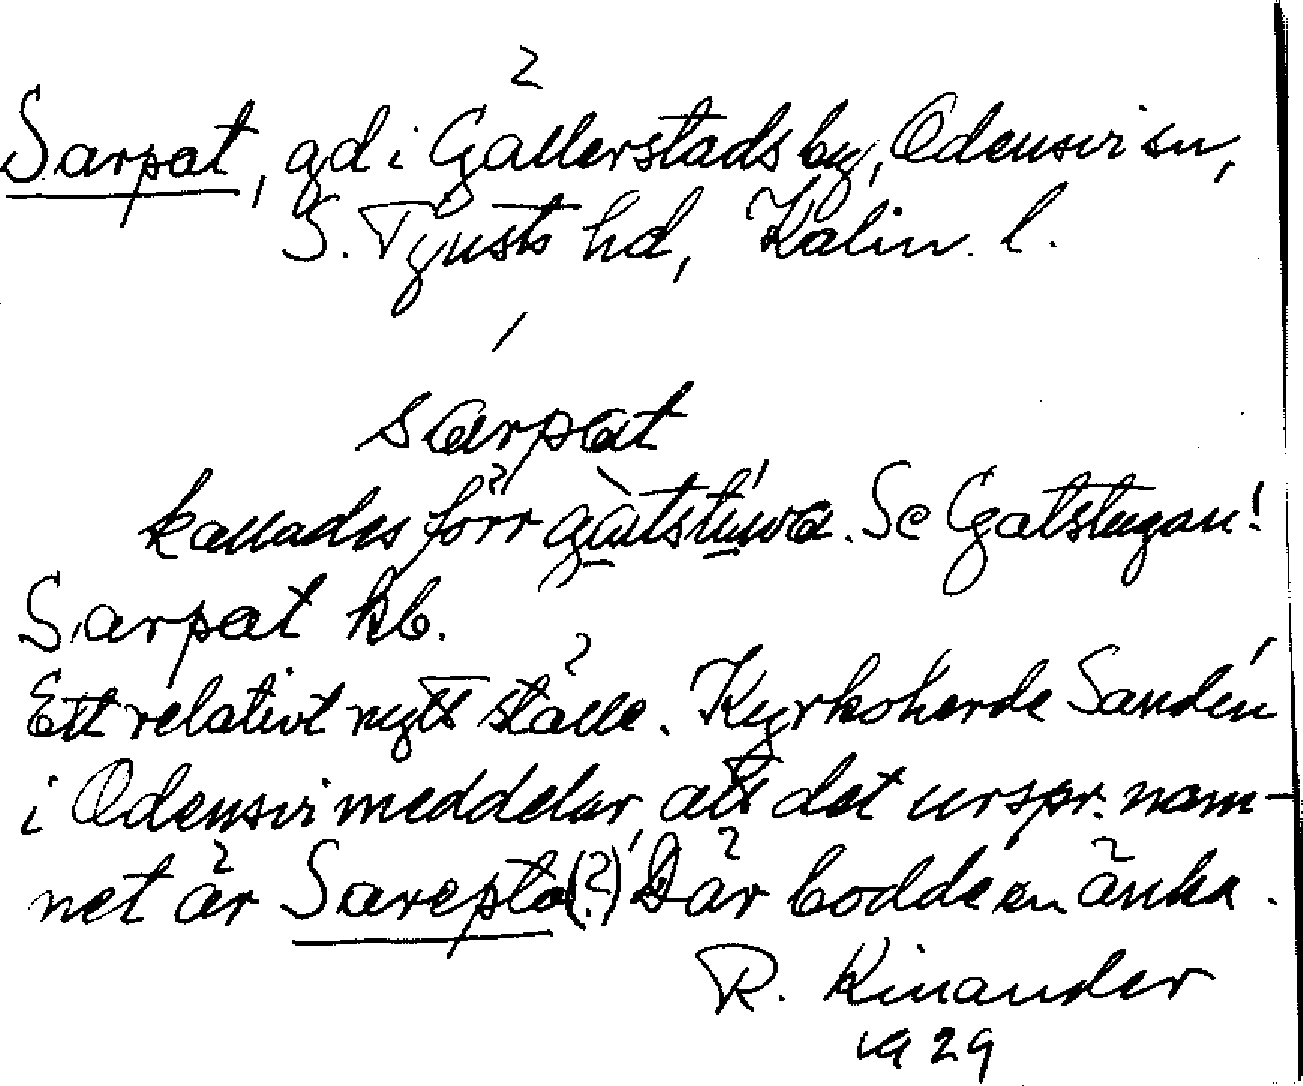 Sarpat, gd i Gällerstads by, Odensvi sn,
S. Tjusts hd, Kalm. l.
sarpat
kallades förr gàtstúwa. Se Gatstugan!
Sarpat kb.
Ett relativt nytt ställe. Kyrkoherde Sandén
i Odensvi meddelar, att det urspr. nam-
net är Sarepta(?) Där bodde en änka.
R. Kinander
1929